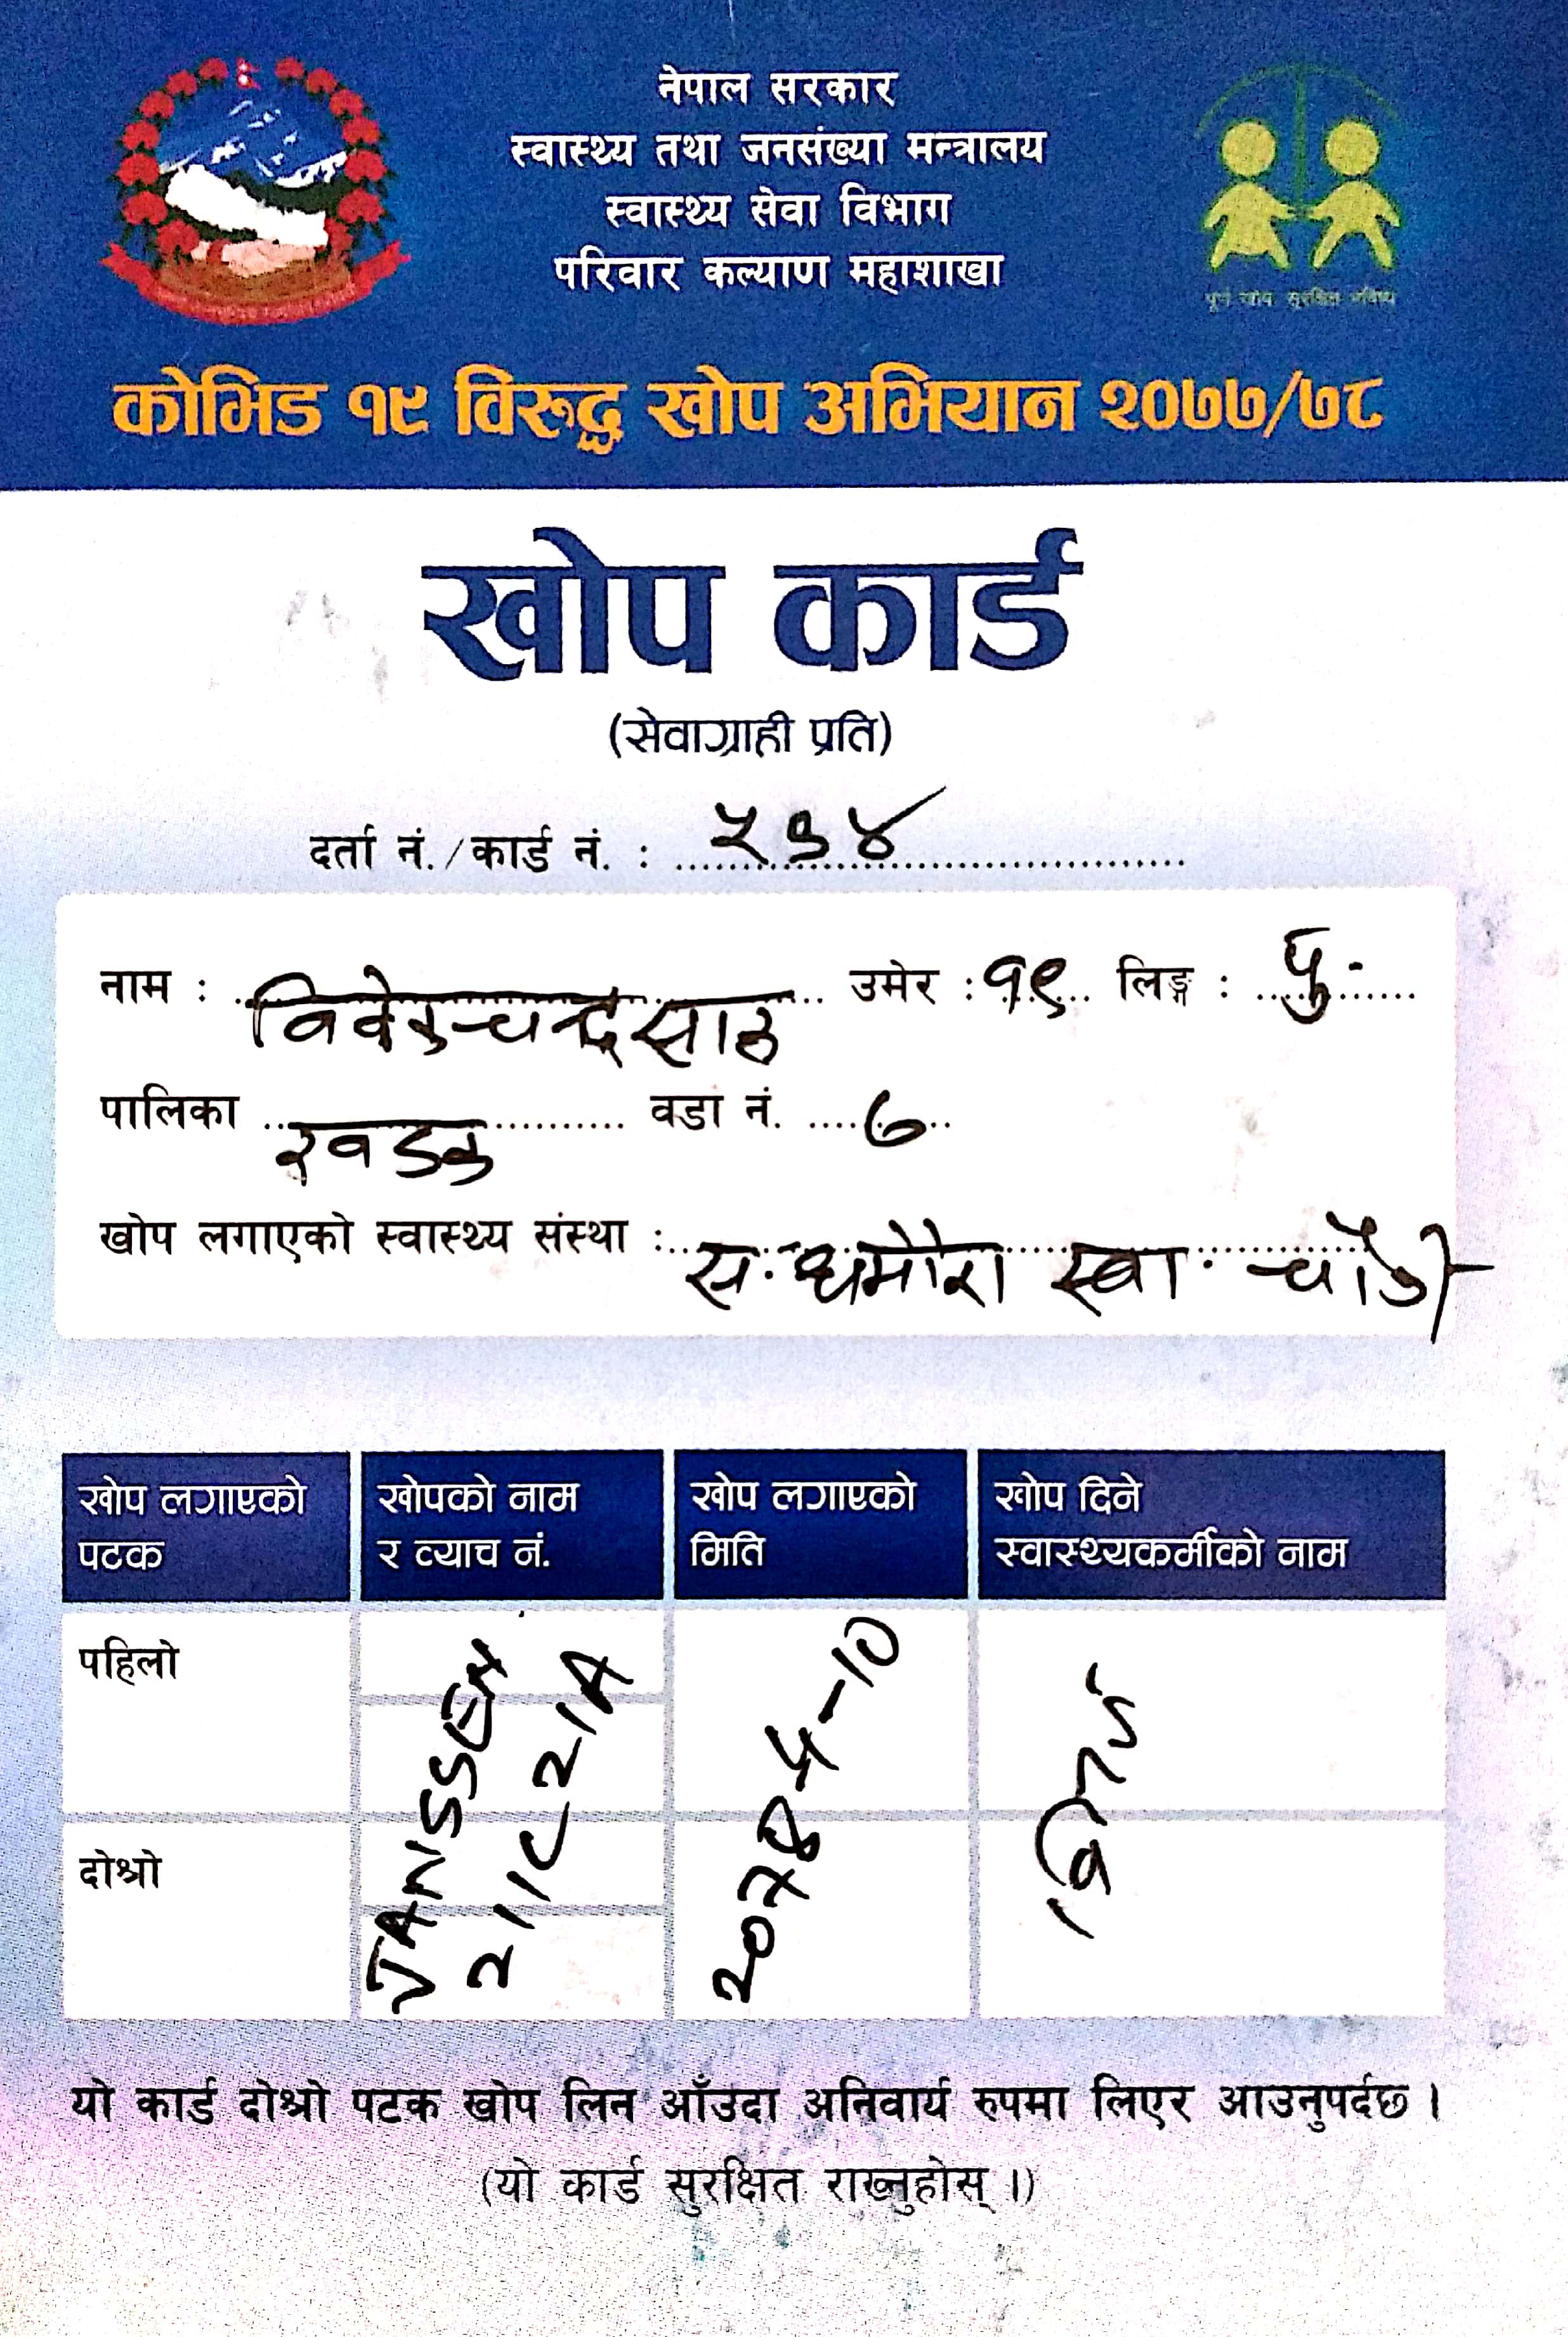 नेपाल सरकार
स्वास्थ्य तथा जनसंख्या मन्त्रालय
स्वास्थ्य सेवा विभाग
परिवार कल्याण महाशाखा
पूर्ण खोप सुरक्षित भविष्य
कोभिड १९ विरुद्ध खोप अभियान २०७७/७८
खोप कार्ड
(सेवाग्राही प्रति)
दर्ता नं./कार्ड नं. : ५७४
नाम : विवेकचन्द्र साह उमेर : १९ लिङ्ग : पु.
पालिका खडक वडा नं. ७
खोप लगाएको स्वास्थ्य संस्था : स. धमौरा स्वा. चौकी
खोप लगाएको पटक
खोपको नाम र व्याच नं.
खोप लगाएको मिति
खोप दिने स्वास्थ्यकर्मीको नाम
पहिलो
दोश्रो
JANSSEN
21A
यो कार्ड दोश्रो पटक खोप लिन आँउदा अनिवार्य रुपमा लिएर आउनुपर्दछ ।
(यो कार्ड सुरक्षित राख्नुहोस् ।)